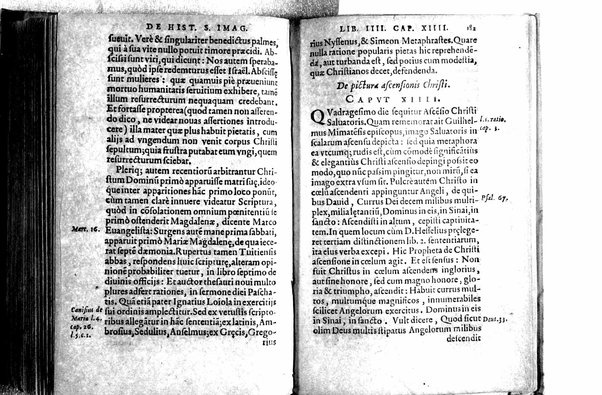 DE HIST. S. IMAG.
susuit. Verè & singulariter benedictus palmes,
qui à sua vite nullo potuit timore præcidi. Abscisi
sunt viri, qui dicunt: Nos autem sperabamus,
quòd ipse redempturus esset Israël. Abscissæ
sunt mulieres: quæ quamuis piè præueniunt
mortuo humanitatis seruitium exhibere, tamē
illum resurrecturum nequaquam credebant.
Et fortasse propterea (quod tamen non asserendo
dico, ne videar nouas assertiones introducere)
illa mater quæ plus habuit pietaris, cum
alijs ad vngendum non venit corpus Christi
sepultum; quia frustra putabat eum vngi, quem
resurrecturum sciebat.
Pleriq; autem recentiorū arbitrantur Christum
Dominū primò apparuisse matri suę, ideoque
inter apparitiones hāc primo loco ponūt,
cùm tamen clarè innuere videatur Scriptura,
quòd in cōsolationem omnium pœnitentiū se
primò ostenderit Magdalenæ, dicente Marco
Marc. 16.
Euangelista: Surgens autē mane prima sabbati,
apparuit primò Mariæ Magdalenę, de qua iecerat
septē dæmonia. Rupertus tamen Tuitiensis
abbas, respondens huic scripturę, alteram opinionē
probabiliter tuetur, in libro septimo de
diuinis officijs: Et auctor thesauri noui multo
plures adfert rationes, in sermone diei Paschatis.
Quā etiā pater Ignatius Loiola in exercitijs
Canisius de
sui ordinis amplectitur. Sed ex vetustis scriptoribus
Maria l. 4.
cap. 26.
allegātur in hāc sententiā; ex latinis, Ambrosius,
l. 5. c. 1.
Sedulius, Anselmus; ex Gręcis, Gregorius
LIB. IIII. CAP. XIIII. 182
rius Nyssenus, & Simeon Metaphrastes. Quare
nulla ratione popularis pietas hic reprehendēda,
aut turbanda est, sed potius cum modestia,
quæ Christianos decet, defendenda.
De pictura ascensionis Christi.
CAPVT XIIII.
QVadragesimo die sequitur Ascēsio Christi
Saluatoris. Quam rememorat Guilhelmus
l. 1. ratio.
Mimatēsis episcopus, imago Saluatoris in
cap. 3.
scalarum ascensu depicta: sed quia metaphora
ea vtcumq; rudis est, cum cōmodè significātiùs
& elegantiùs Christi ascensio depingi possit eo
modo, quo nūc passim pingitur, non mirū, si ea
imago extra vsum sit. Pulcrè autem Christo in
cœlū ascendenti appinguntur Angeli, de quibus
Psal. 67.
Dauid, Currus Dei decem milibus multiplex,
milia lętantiū, Dominus in eis, in Sinai, in
sancto: Ascendisti in altum, cepisti captiuitatem.
In quem locum cùm D. Hesselius prælegeret
tertiam distinctionem lib. 2. sententiarum,
ita eius verba excepi. Hic Propheta de Christi
ascensione in cœlum agit. Et est sensus: Non
fuit Christus in cœlum ascendens inglorius,
aut sine honore, sed cum magno honore, gloria
& triumpho, ascendit: Habuit currus multos,
multúmque magnificos, innumerabiles
scilicet Angelorum exercitus. Dominus in eis
in Sinai, in sancto. Vult dicere, Quod sicut
Deut. 33.
olim Deus multis stipatus Angelorum milibus
descendit